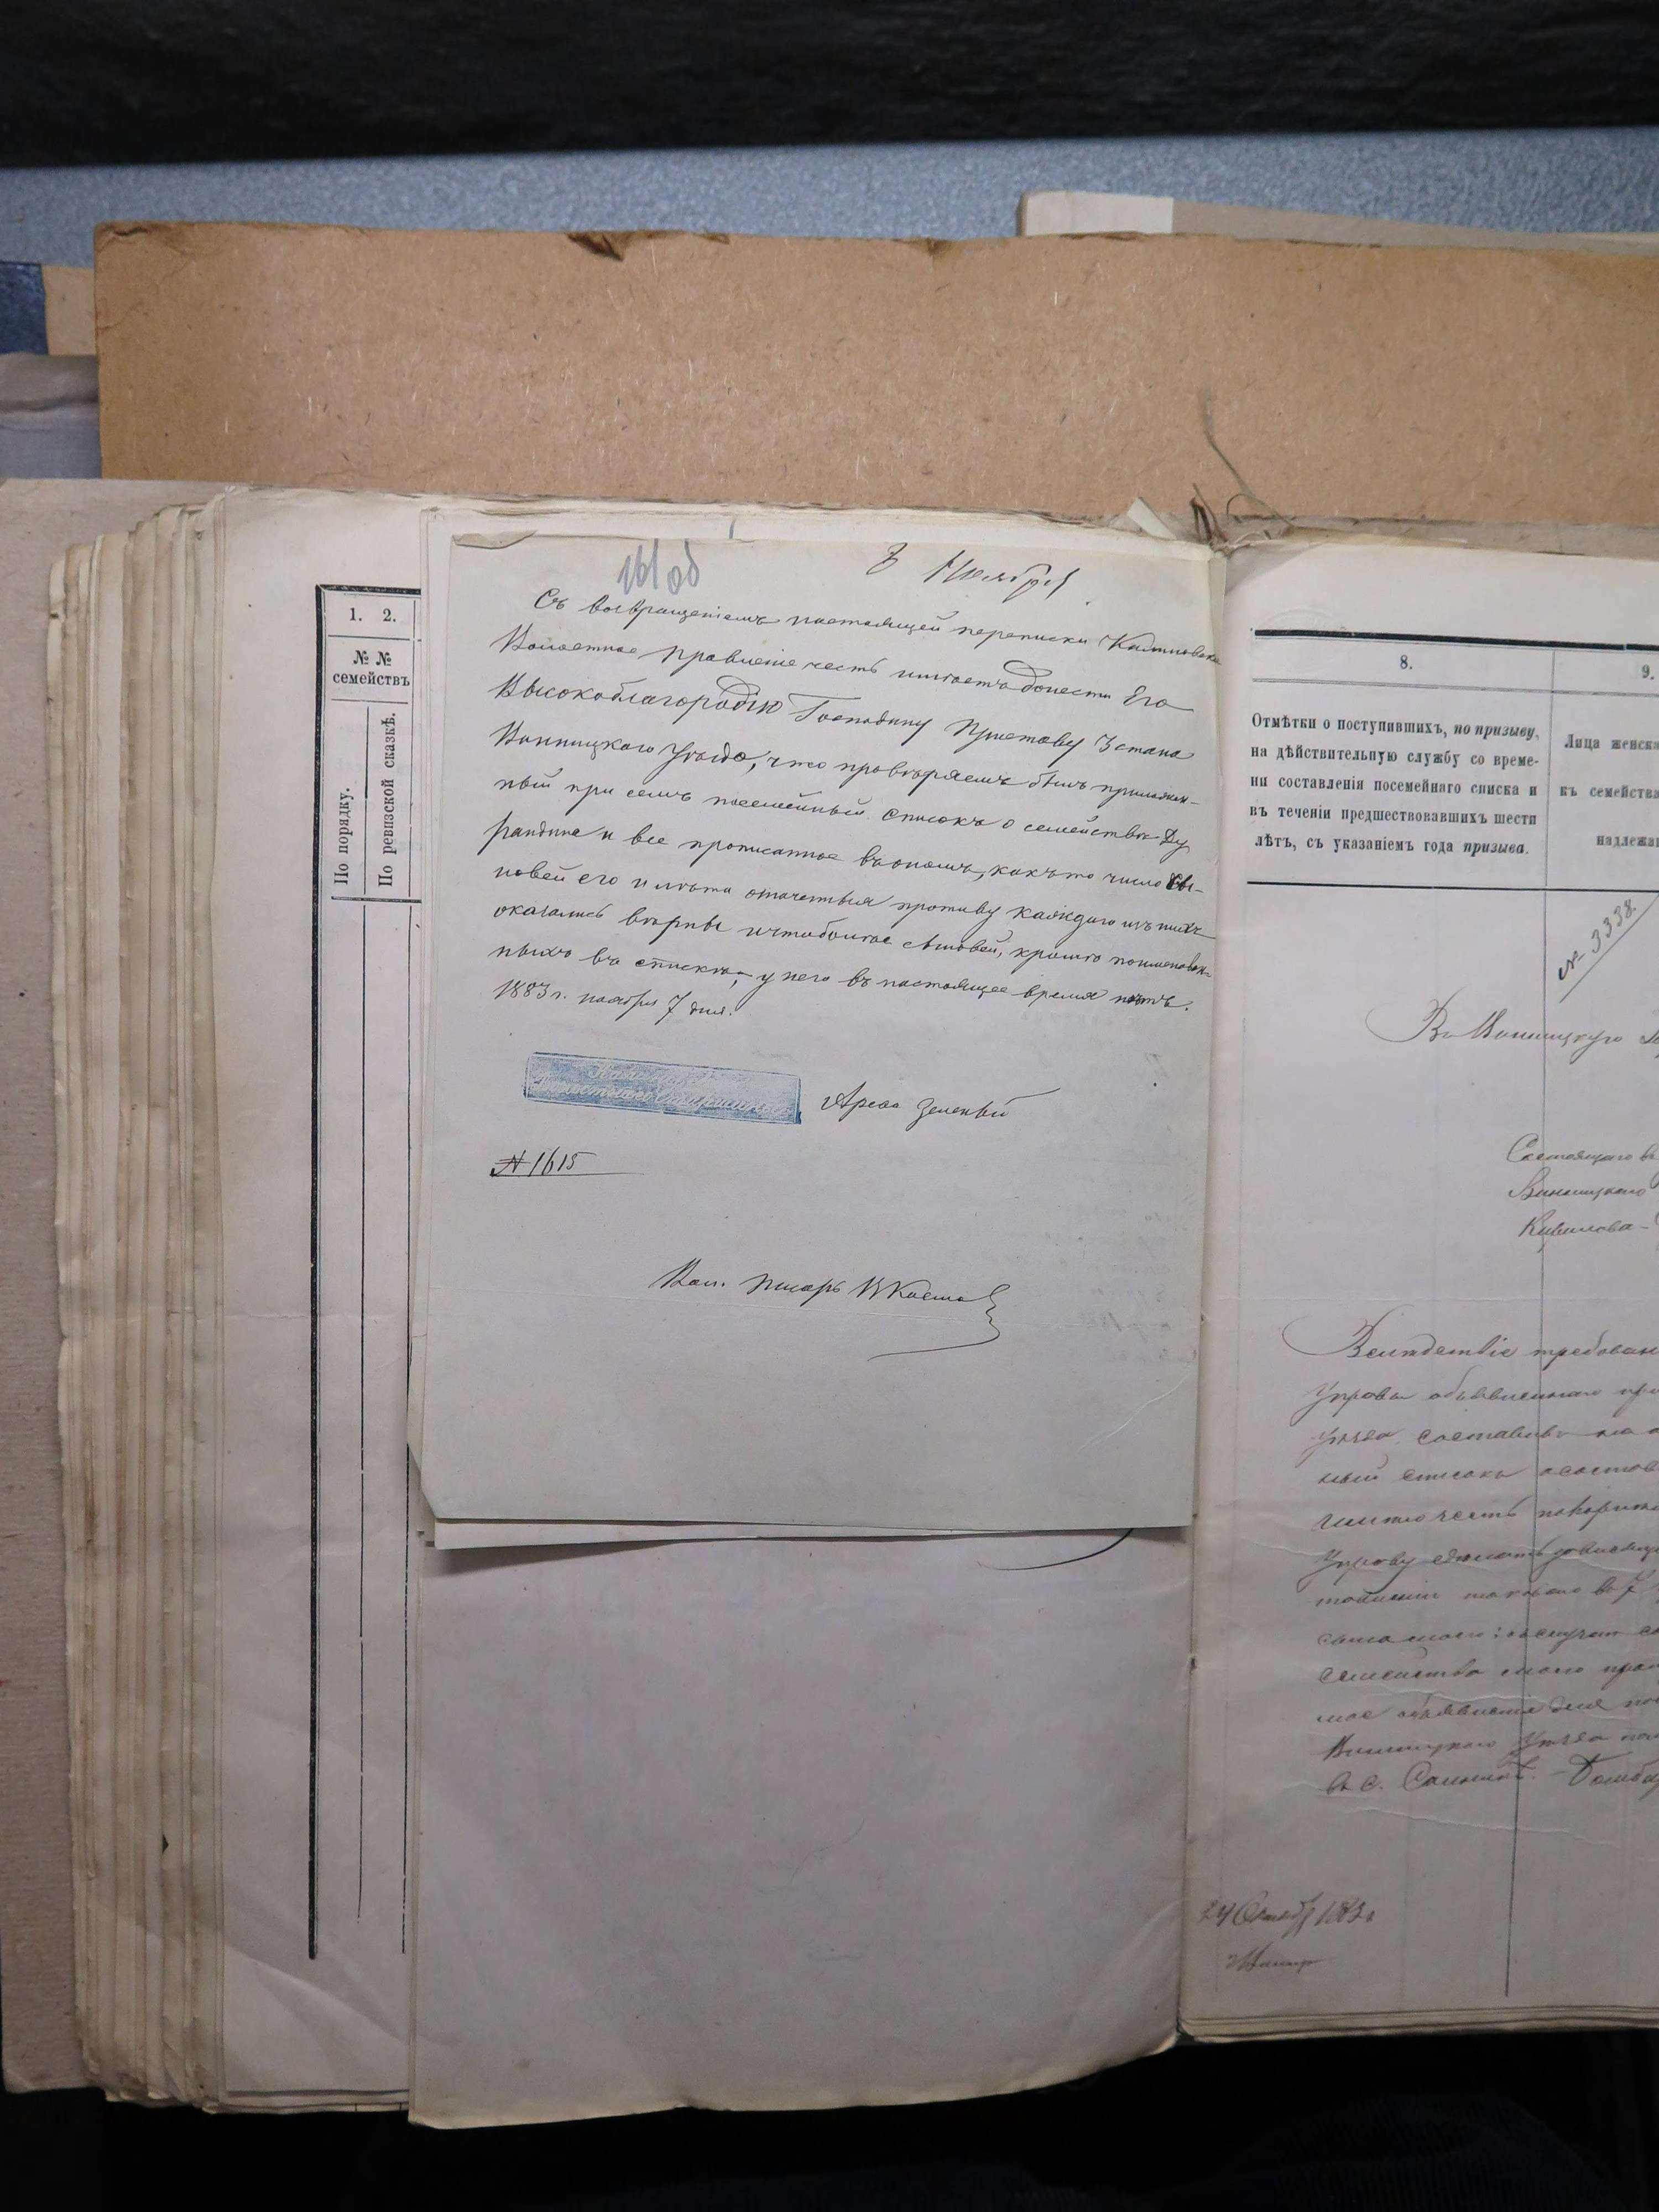 1. 2.
№ №
семействъ
По порядку.
По ревизской сказкѣ.
161 об
8 Ноября
Съ возвращеніемъ настоящей переписки
Волостное Правленіе честь имѣетъ донести Его
Высокоблагородію Господину Приставу 3 стана
Винницкаго Уѣзда, что провѣряемъ былъ приложен-
ный при семъ посемейный списокъ о семействѣ Ду
рандина и все прописанное въ ономъ, какъ то число сы-
новей его и лѣта отъ противу каждаго изъ нихъ
оказались вѣрны и чтобы сыновей, кромѣ поименован-
ныхъ въ спискѣ, у него въ настоящее время нѣтъ.
1883 г. ноября 7 дня.
Зеленый
№ 1615
Вол. Писарь
8.
9.
Отмѣтки о поступившихъ, по призыву,
на дѣйствительную службу со време-
ни составленія посемейнаго списка и
въ теченіи предшествовавшихъ шести
лѣтъ, съ указаніемъ года призыва.
Лица женска
къ семейства
надлежа
№ 3338.
Въ Винницкую
Состоящаго въ
Винницкаго
Вслѣдствіе требован
Управы объявленнаго пр
уѣзда составивъ на
ный списокъ о состав
имѣю честь покорн
Управу сдѣлать зависящ
семейства моего
мое объявленіе для
Винницкаго Уѣзда
въ с.
24 Октяб 1883 г